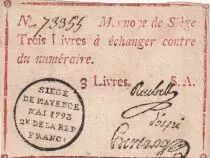 No 73355 Monoye de Siège
Trois Livres à échanger contre
du numéraire.
3 Livres. S.A.
SIEGE
DE MAYENCE
MAI 1793
2e DE LA REP
FRANC:
Reubell